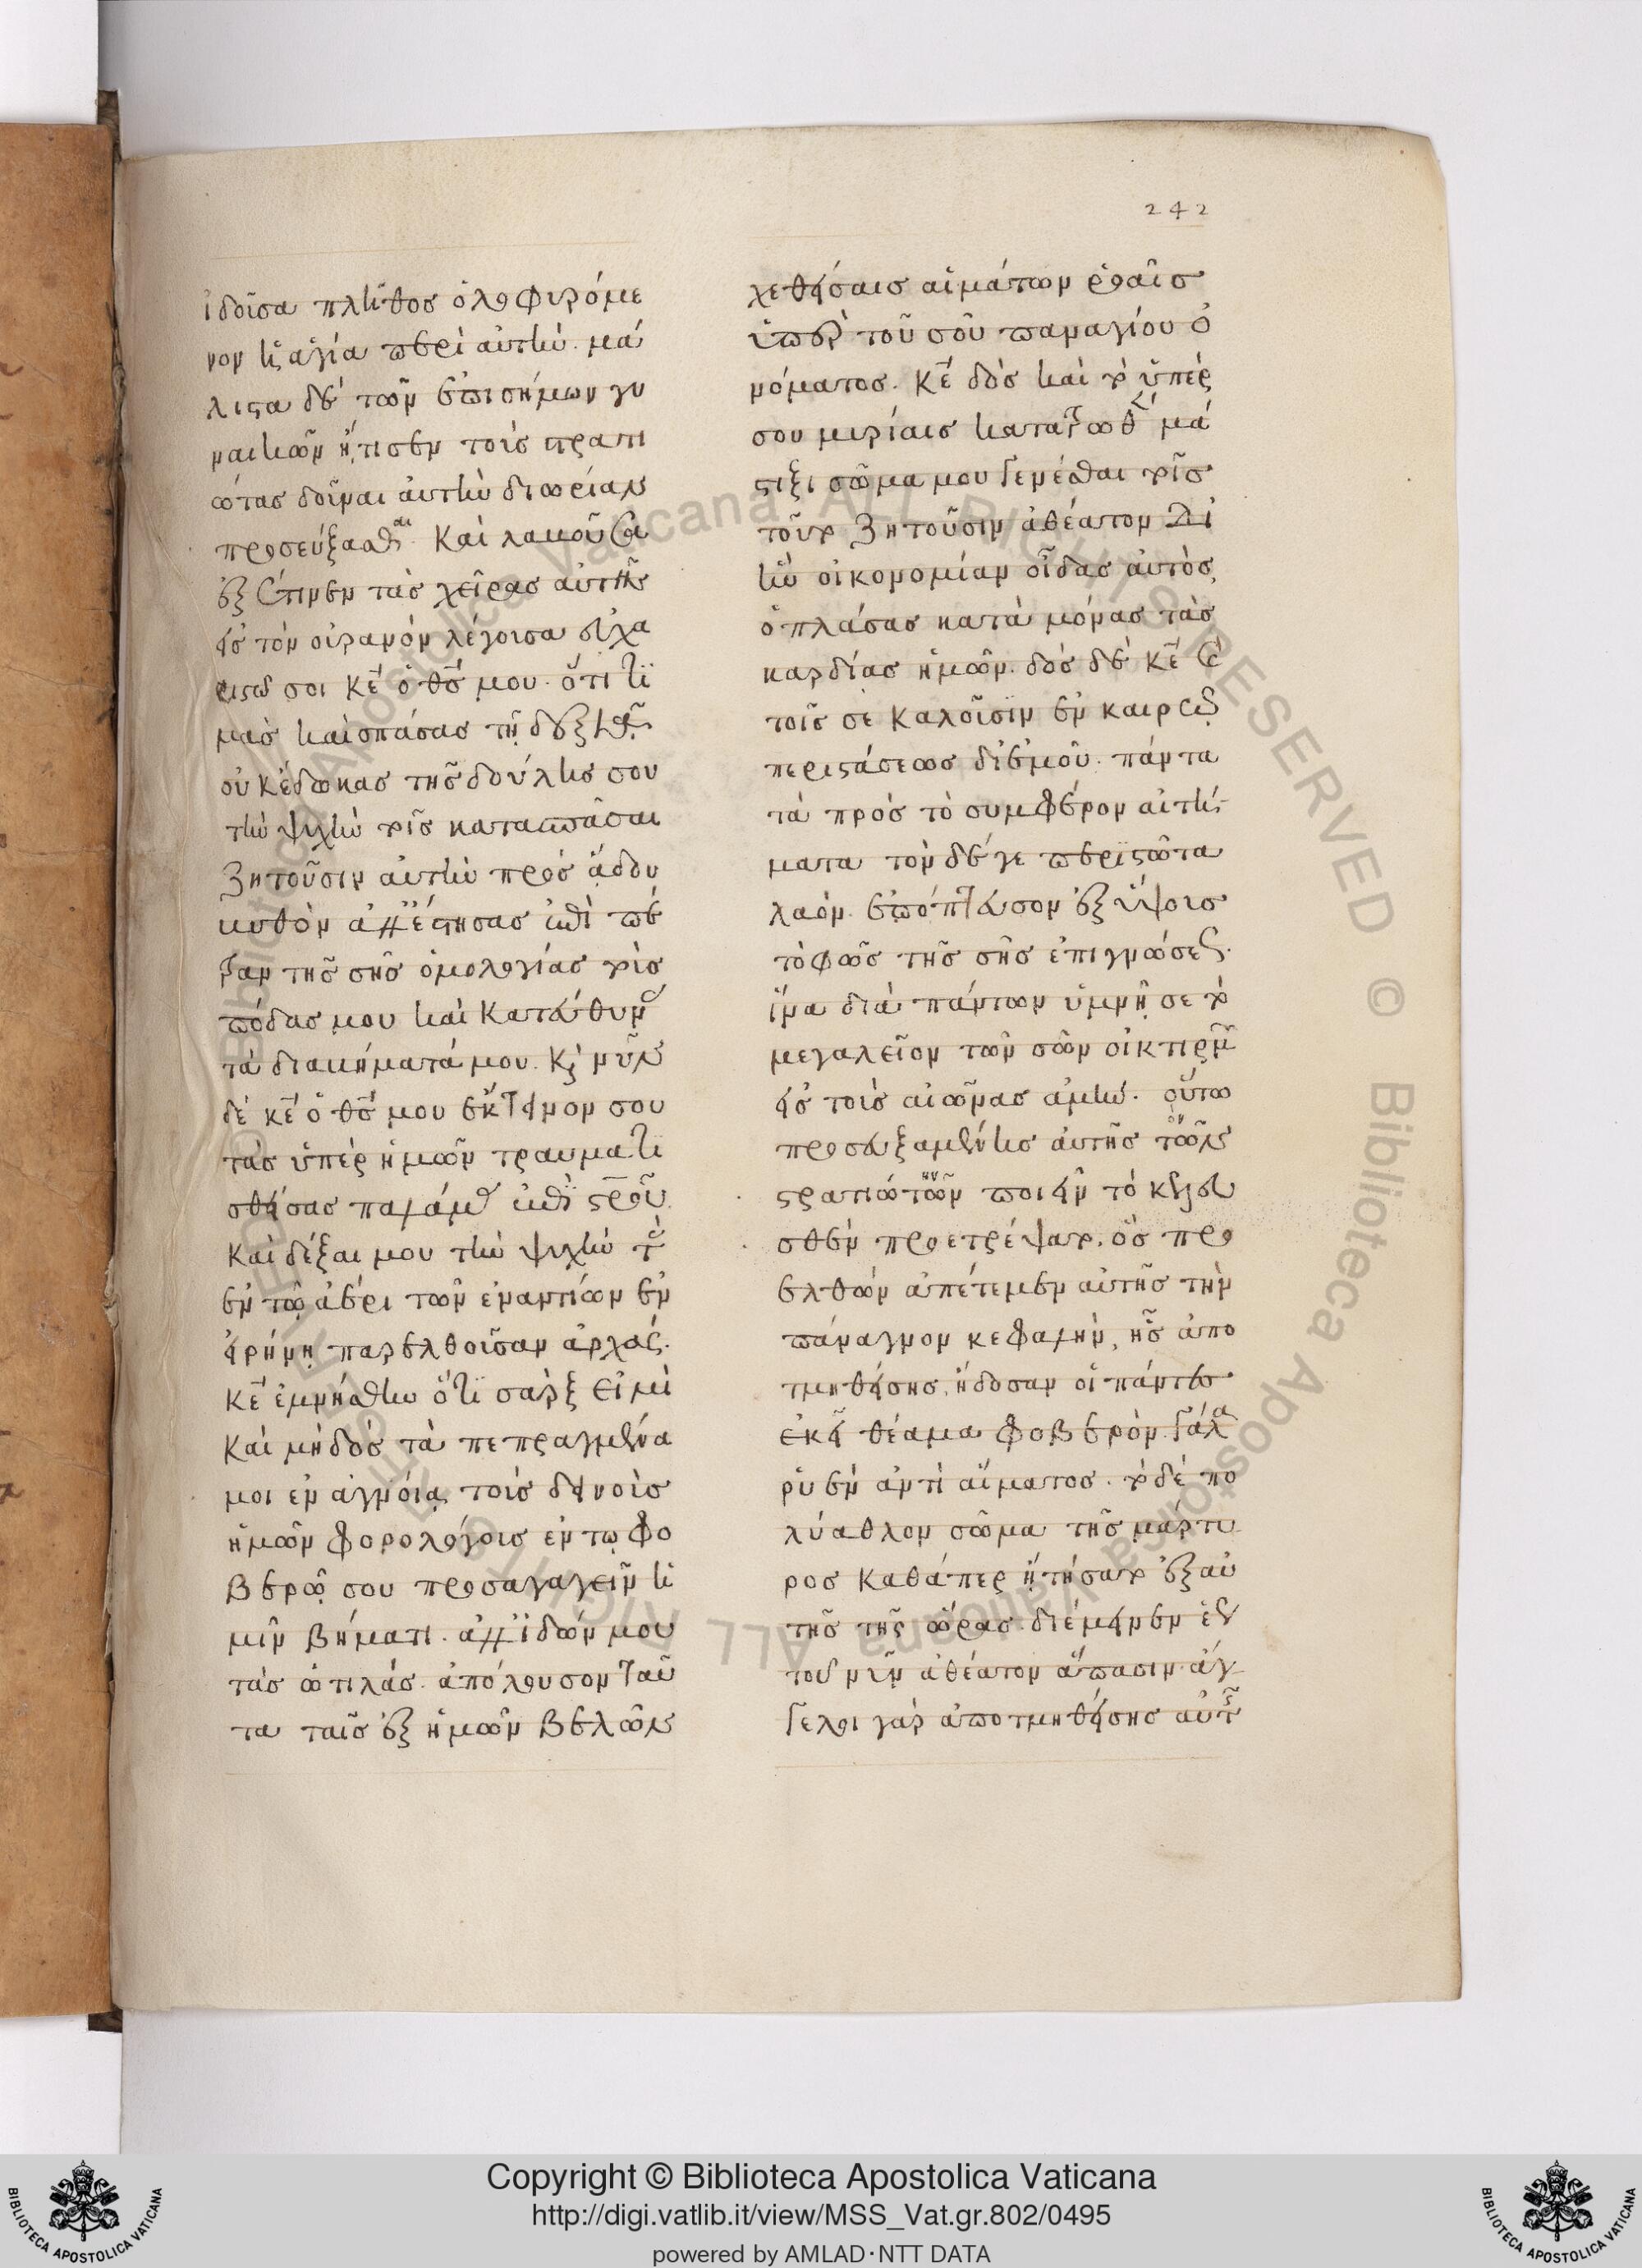 242
ἰδοῦσα πλῆθος ὀλοφυρόμε
νον ἡ ἁγία περὶ αὐτήν. μά
λιστα δὲ τῶν ἐπισήμων γυ
ναικῶν ᾔτησεν τοὺς στρατι
ώτας δοῦναι αὐτὴν διωρίαν
προσεύξασθαι. καὶ λαβοῦσα
ἐξέτεινεν τὰς χεῖρας αὐτῆς
εἰς τὸν οὐρανὸν λέγουσα εὐχα
ριστῶ σοι κε ὁ θς μου. ὅτι
οὐκ ἔδωκας τῆς δούλης σου
τὴν ψυχὴν τοῖς κατασπᾶσαι
ζητοῦσιν αὐτὴν πρὸς ᾅδου
κυθὸν ἀλλ' ἔστησας ἐπὶ πέ
τραν τῆς σῆς ὁμολογίας τοὺς
πόδας μου καὶ κατεύθυνας
τὰ διαβήματά μου. καὶ νῦν
δέ κε ὁ θς μου ἔκτεινον σου
τὰς ὑπὲρ ἡμῶν τραυματι
σθείσας παλάμας ἐπὶ στροῦ
καὶ δέξαι μου τὴν ψυχὴν
ἐν τῷ ἀέρι τῶν ἐναντίων ἐν
εἰρήνῃ παρελθοῦσαν ἀρχάς.
κε ἐμνήσθην ὅτι σάρξ εἰμι
καὶ μὴ δὸς τὰ πεπραγμένα
μοι ἐν ἀγνοίᾳ τοῖς δεινοῖς
ἡμῶν φορολόγοις ἐν τῷ φο
βερῷ σου προσαγαγεῖν
βήματι. ἀλλ' ἰδών μου
τὰς ὠτιλὰς ἀπόλουσον ταῦ
τα ταῖς ἐξ ἡμῶν βελῶν
χεθείσαις αἱμάτων ῥοαῖς
ὑπὲρ τοῦ σοῦ παναγίου ὀ
νόματος. κε δὸς καὶ τὸ ὑπέρ
σου μυρίαις καταξανθὲν μά
στιξι σῶμα μου γενέσθαι τοῖς
τοῦτο ζητοῦσιν ἀθέατον δι'
ἣν οἰκονομίαν οἶδας αὐτὸς
ὁ πλάσας κατὰ μόνας τὰς
καρδίας ἡμῶν. δὸς δὲ κε
τοῖς σε καλοῦσιν ἐν καιρῷ
περιστάσεως δι' ἐμοῦ. πάντα
τὰ πρὸς τὸ συμφέρον αἰτή
ματα τὸν δέ γε περιεστῶτα
λαόν. ἐπόπτευσον ἐξ ὕψους
τὸ φῶς τῆς σῆς ἐπιγνώσεως.
ἵνα διὰ πάντων ὑμνῇ σε τὸ
μεγαλεῖον τῶν σῶν οἰκτιρμῶν
εἰς τοὺς αἰῶνας ἀμήν. οὕτω
προσευξαμένης αὐτῆς τῶν
στρατιωτῶν ποιεῖν τὸ κελευ
σθὲν προετρέψατο. ὃς προ
ελθὼν ἀπέτεμεν αὐτῆς τὴν
πάναγνον κεφαλήν, ἧς ἀπο
τμηθείσης, εἴδοσαν οἱ πάντες
ἐκεῖ θέαμα φοβερόν. γάλα
ῥύεν ἀντὶ αἵματος. τὸ δὲ πο
λύαθλον σῶμα τῆς μάρτυ
ρος καθάπερ ᾐτήσατο ἐξ αὐ
τῆς τῆς ὥρας διέμεινεν ἕως
τοῦ νῦν ἀθέατον ἅπασιν. ἄγ
γελοι γὰρ ἀποτμηθείσης αὐτῆς
Copyright © Biblioteca Apostolica Vaticana
http://digi.vatlib.it/view/MSS_Vat.gr.802/0495
powered by AMLAD·NTT DATA
BIBLIOTECA APOSTOLICA VATICANA
BIBLIOTECA APOSTOLICA VATICANA